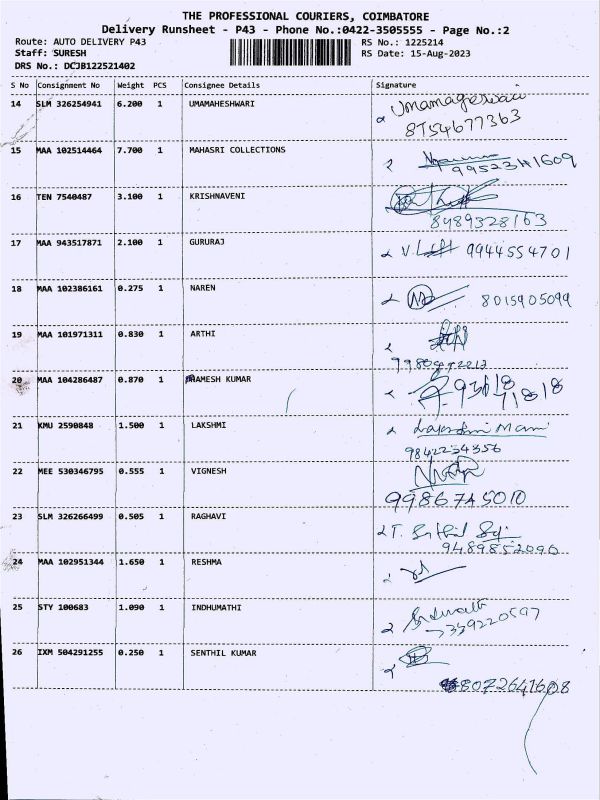 THE PROFESSIONAL COURIERS, COIMBATORE
Delivery Runsheet - P43 - Phone No.:0422-3505555 - Page No.:2
Route: AUTO DELIVERY P43 RS No.: 1225214
Staff: SURESH RS Date: 15-Aug-2023
DRS No.: DCJB122521402
S No Consignment No Weight PCS Consignee Details Signature
14 SLM 326254941 6.200 1 UMAMAHESHWARI Umamageswari
8754677363
15 MAA 102514464 7.700 1 MAHASRI COLLECTIONS
16 TEN 7540487 3.100 1 KRISHNAVENI
8489328163
17 MAA 943517871 2.100 1 GURURAJ 9944554701
18 MAA 102386161 0.275 1 NAREN 8015905099
19 MAA 101971311 0.830 1 ARTHI
20 MAA 104286487 0.870 1 RAMESH KUMAR
21 KMU 2590848 1.500 1 LAKSHMI Lakshmi Mani
9842234356
22 MEE 530346795 0.555 1 VIGNESH
9986745010
23 SLM 326266499 0.505 1 RAGHAVI
9489852096
24 MAA 102951344 1.650 1 RESHMA
25 STY 100683 1.090 1 INDHUMATHI
7339220597
26 IXM 504291255 0.250 1 SENTHIL KUMAR
8072641608